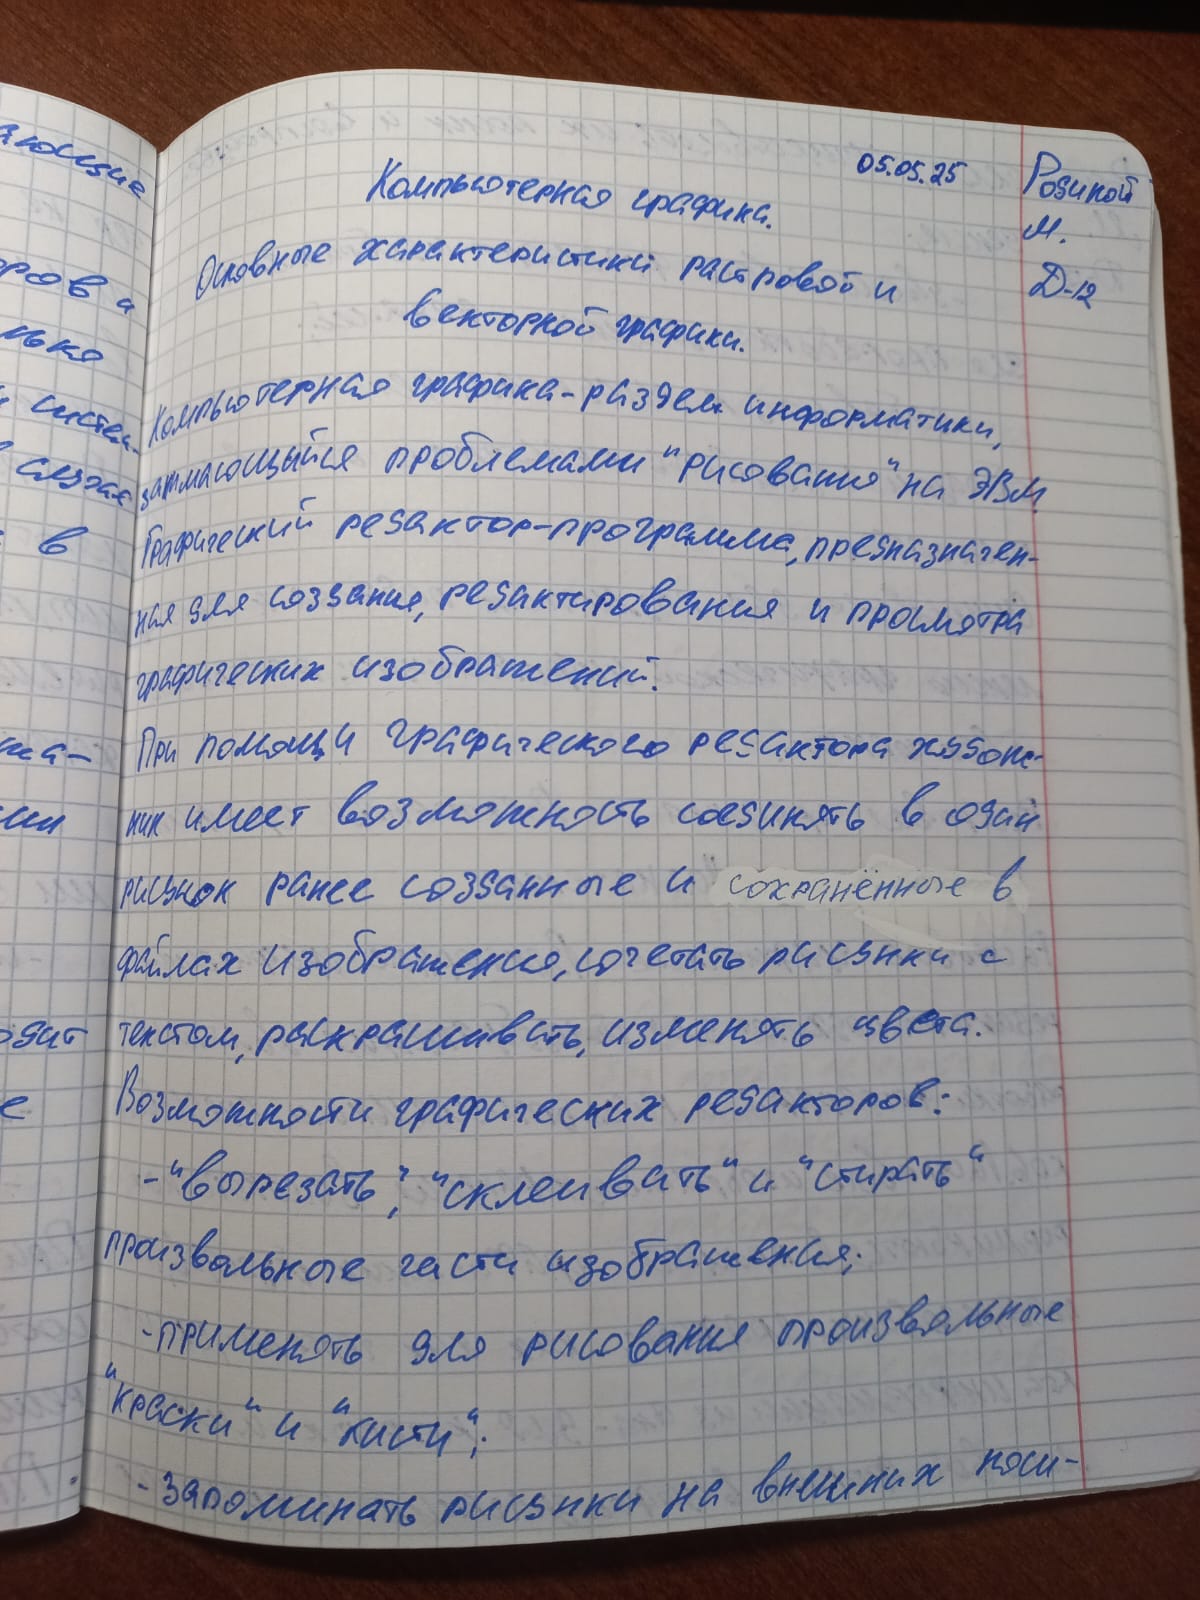 05.05.25
Родиной
М.
Д-12
Компьютерная графика.
Основные характеристики растровой и
векторной графики.
Компьютерная графика-раздел информатики,
занимающийся проблемами "рисования" на ЭВМ.
Графический редактор-программа, предназначен-
ная для создания, редактирования и просмотра
графических изображений.
При помощи графического редактора худож-
ник имеет возможность соединять в один
рисунок ранее созданные и сохранённые в
файлах изображения, сочетать рисунки с
текстом, раскрашивать, изменять цвета.
Возможности графических редакторов:
-"вырезать", "склеивать" и "стирать"
произвольные части изображения;
-применять для рисования произвольные
"краски" и "кисти";
-запоминать рисунки на внешних носи-
ающие
оров и
систем-
в случае
в
одит
е